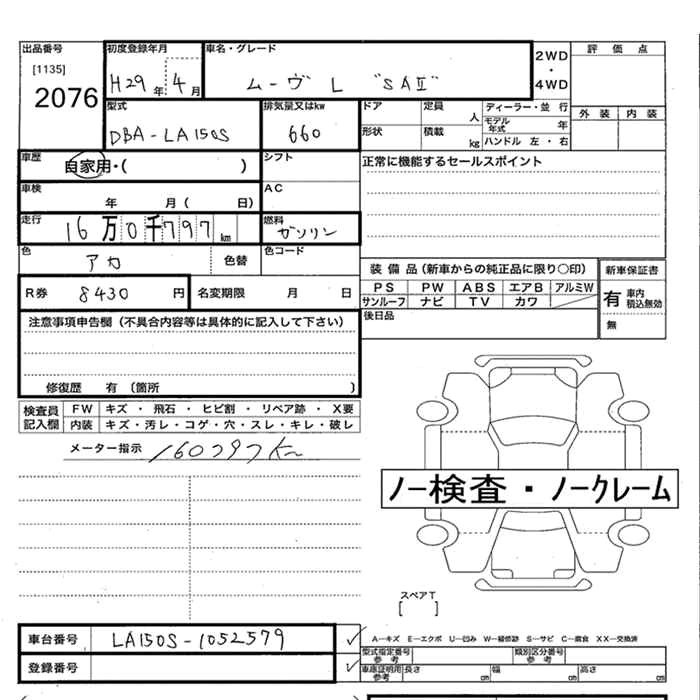 出品番号
[1135]
2076
初度登録年月
H29年 4月
車名・グレード
ムーヴ L "SAⅡ"
2WD
・
4WD
評価点
外装 内装
型式
DBA-LA150S
排気量又はkw
660
ドア
定員
人
ディーラー・並行
モデル年式 年
形状
積載
kg
ハンドル 左・右
車歴
自家用・( )
シフト
正常に機能するセールスポイント
車検
年 月( 日)
AC
走行
16万0千797km
燃料
ガソリン
色
アカ
色替
色コード
装備品(新車からの純正品に限り○印)
新車保証書
PS PW ABS エアB アルミW
サンルーフ ナビ TV カワ
有 車内積込無効
無
R券
8430円
名変期限 月 日
後日品
注意事項申告欄(不具合内容等は具体的に記入して下さい)
修復歴 有 (箇所 )
検査員記入欄
FW キズ ・ 飛石 ・ ヒビ割 ・ リペア跡 ・ X要
内装 キズ・汚レ・コゲ・穴・スレ・キレ・破レ
メーター指示 160797km
ノー検査・ノークレーム
スペアT
[ ]
車台番号
LA150S-1052579
登録番号
A―キズ E―エクボ U―凹み W―補修跡 S―サビ C―腐食 XX―交換済
型式指定番号
参考
類別区分番号
参考
車庫証明用
参考
長さ cm 幅 cm 高さ cm